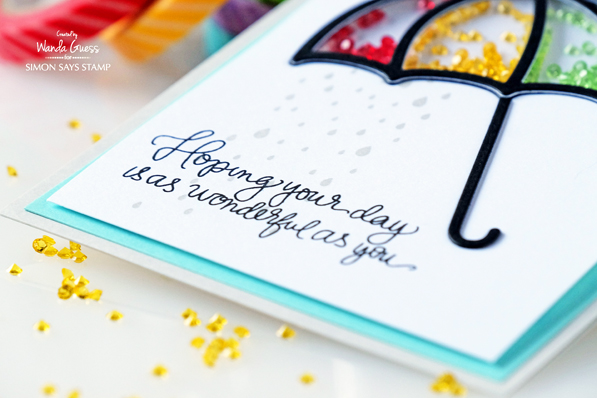 Created by
Wanda Guess
for
SIMON SAYS STAMP
Hoping your day
is as wonderful as you